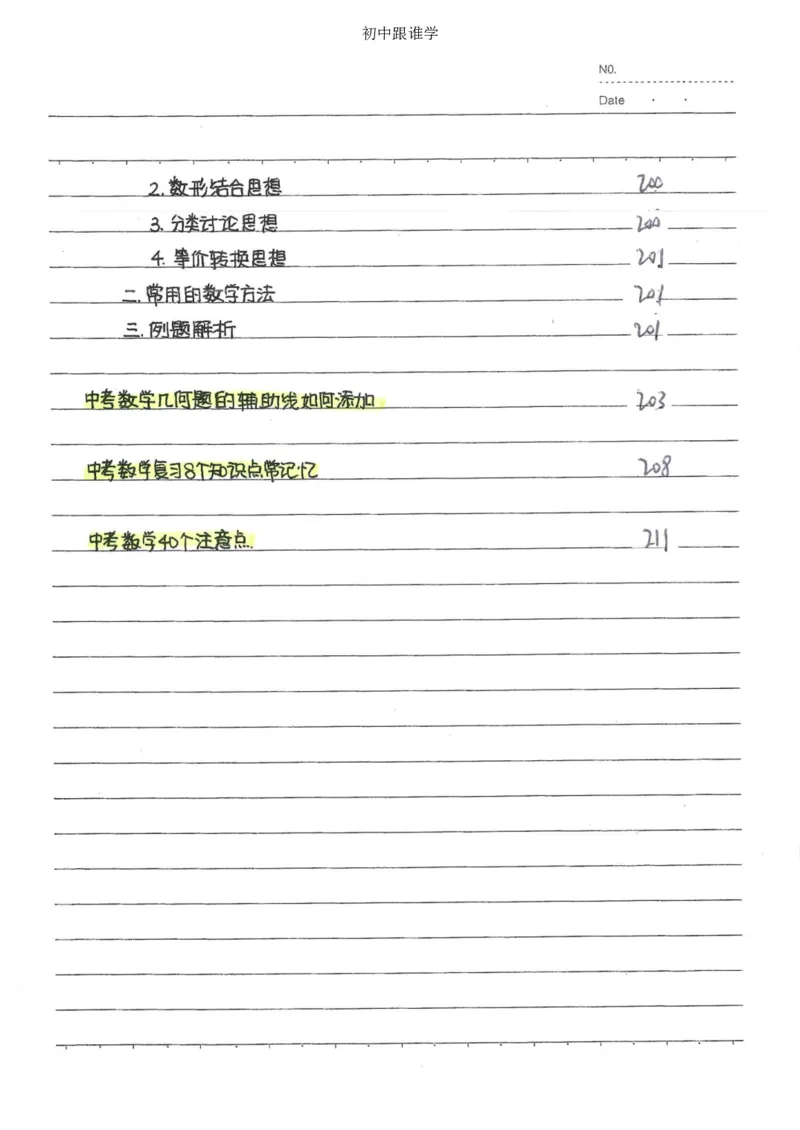 初中跟谁学
N0.
Date · ·
2. 数形结合思想 200
3. 分类讨论思想 200
4. 等价转换思想 201
二. 常用的数学方法 201
三. 例题解析 201
中考数学几何题的辅助线如何添加 203
中考数学复习8个知识点常记忆 208
中考数学40个注意点. 211